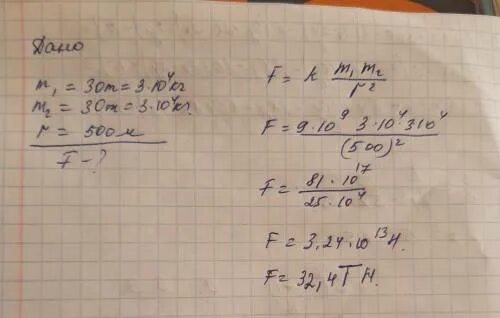 Дано
m₁ = 30т = 3·10⁴кг
m₂ = 30т = 3·10⁴кг.
r = 500м
F - ?
F = k m₁ m₂ / r²
F = 9·10⁹ 3·10⁴ 3·10⁴ / (500)²
F = 81·10¹⁷ / 25·10⁴
F = 3,24·10¹³ Н.
F = 32,4 ТН.